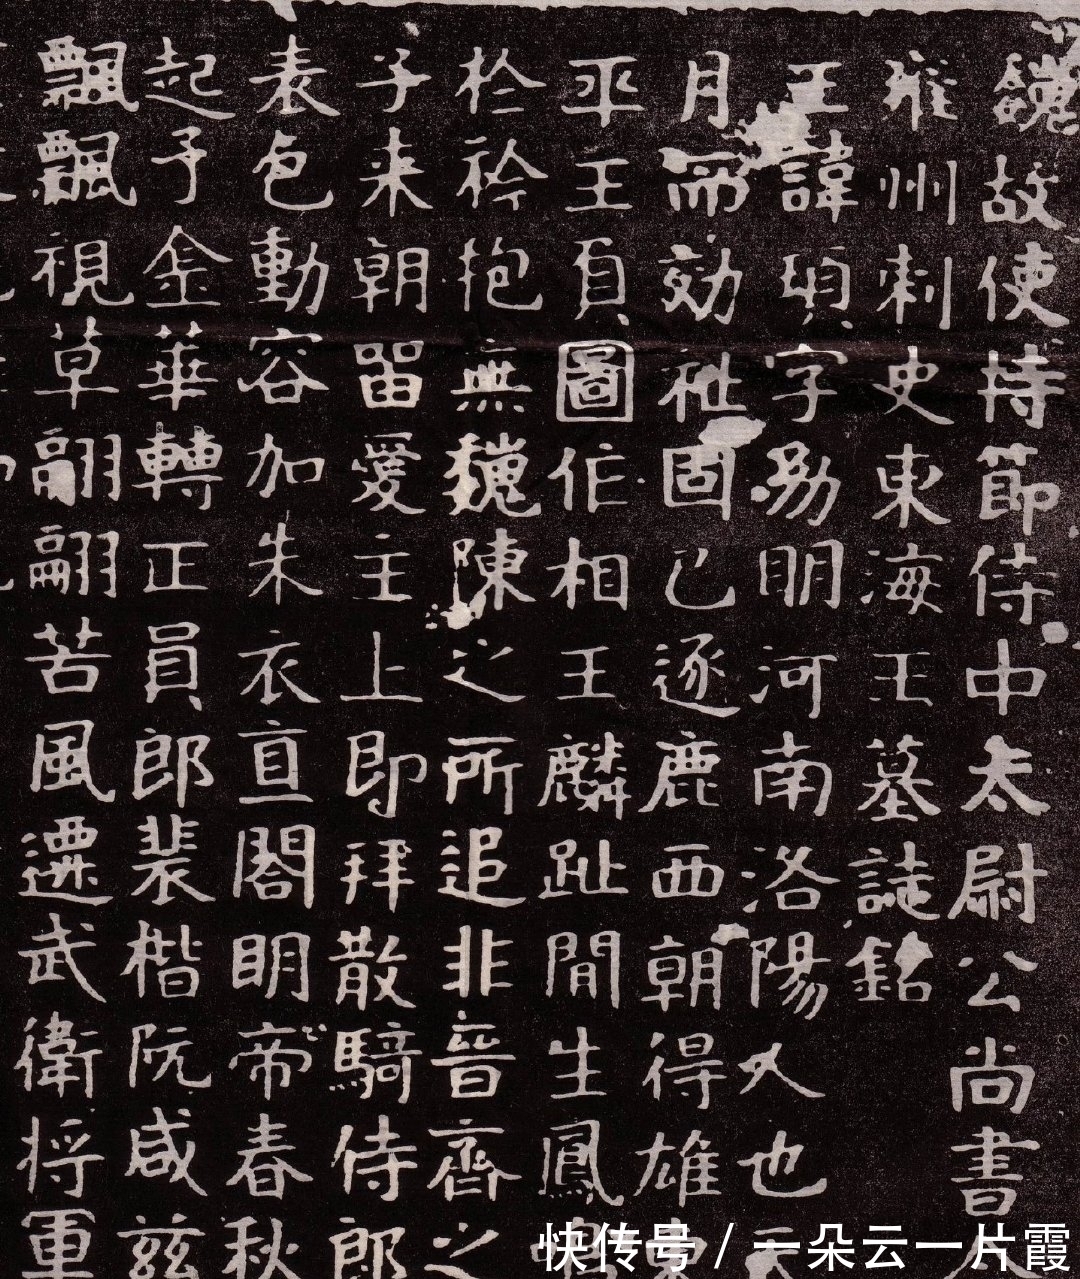 魏故使持節侍中太尉公尚書
雍州刺史東海王墓誌銘
王諱頊字幼明河南洛陽人也
月而効祉固已逐鹿西朝得雄
平王負圖作相王麟趾間生鳳
於衿抱無魏陳之所追非晉齊之
子来朝留愛主上即拜散騎侍郎
表色動容加朱衣直閤明帝春秋
起予金華轉正員郎裴楷阮咸兹
飄飄視草翩翩苦風遷武衛将軍
快传号 / 一朵云一片霞